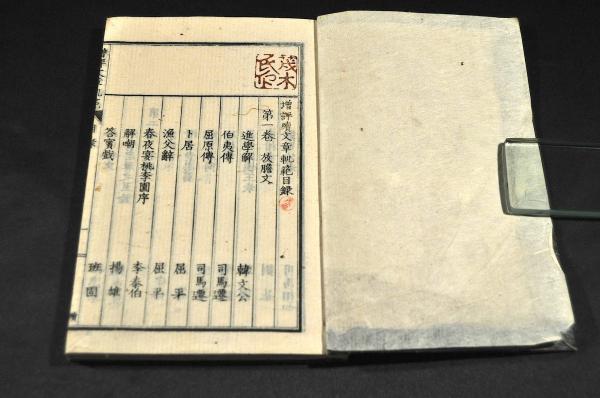 増評續文章軌範目録
第一卷 放膽文
進學解 韓文公
伯夷傳 司馬遷
屈原傳 司馬遷
卜居 屈平
漁父辭 屈平
春夜宴桃李園序 李泰伯
解嘲 揚雄
答賓戲 班固
茂木